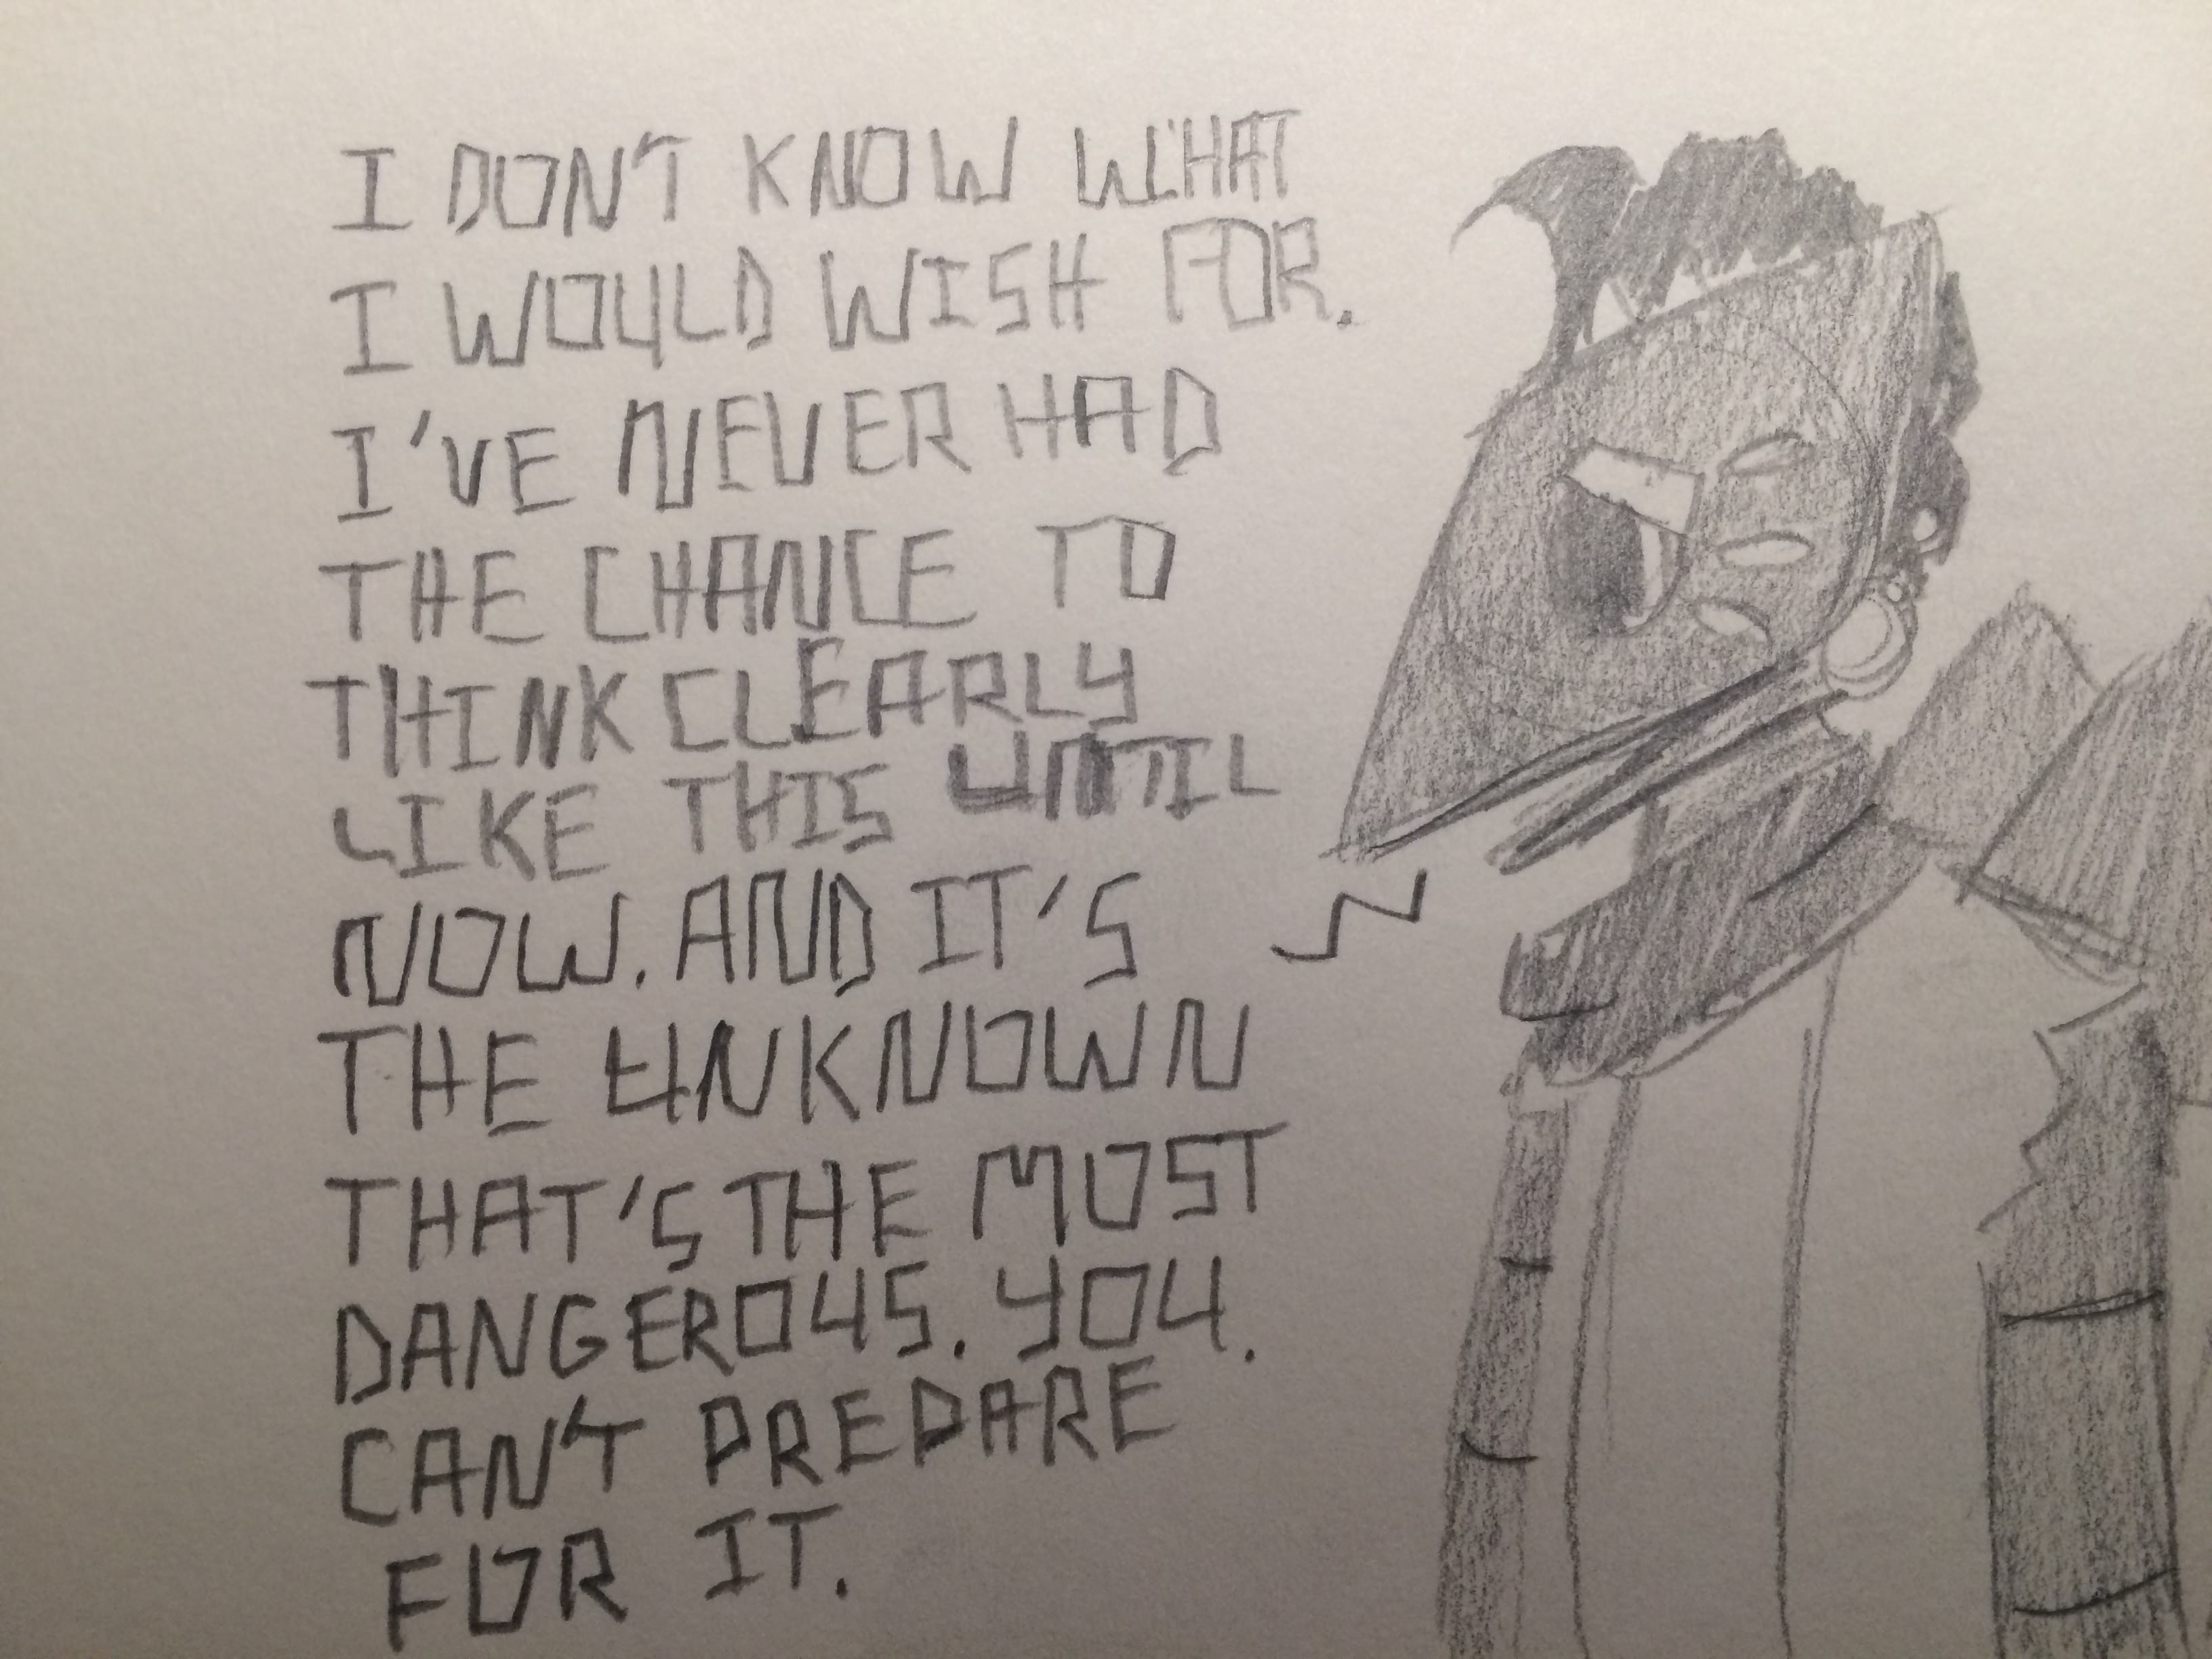 I DON'T KNOW WHAT
I WOULD WISH FOR.
I'VE NEVER HAD
THE CHANCE TO
THINK CLEARLY
LIKE THIS UNTIL
NOW. AND IT'S
THE UNKNOWN
THAT'S THE MOST
DANGEROUS. YOU.
CAN'T PREPARE
FOR IT.